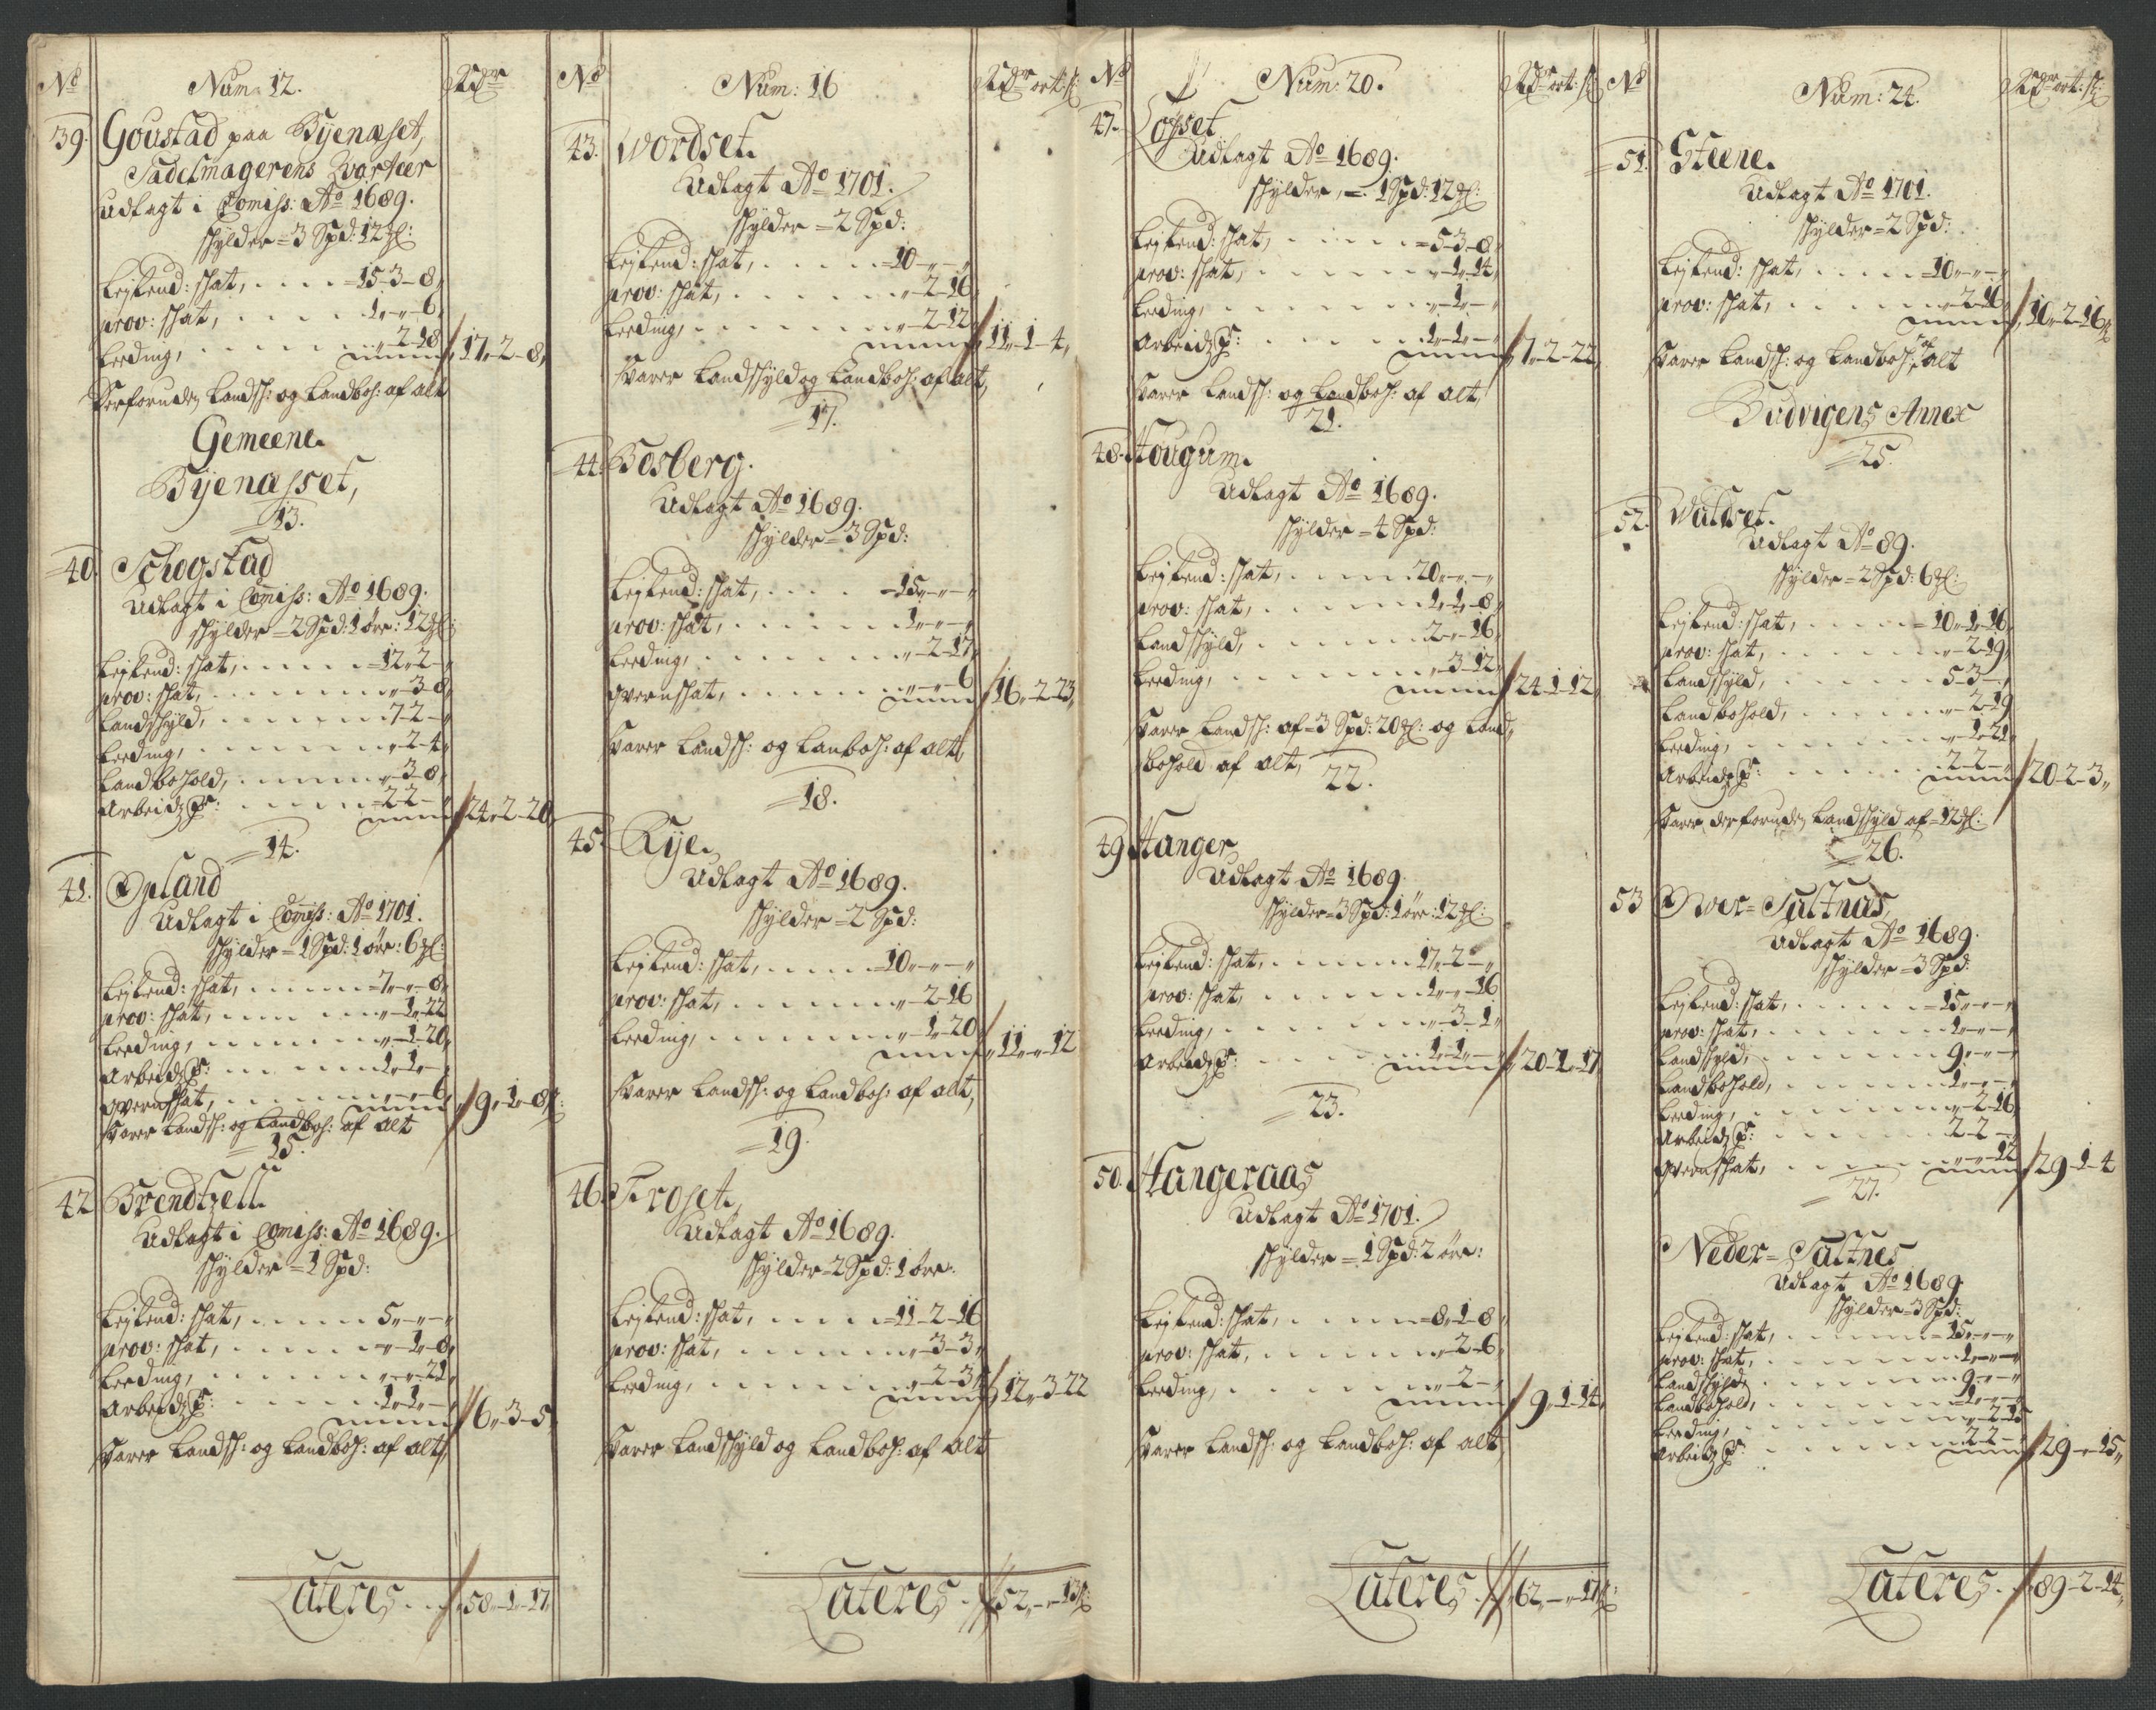 No
Num: 12.
Rdr
39.
Goustad paa Byenæset,
Sadelmagerens Qvarteer
Udlagt i Comiss: Ao 1689.
skylder = 3 Spd: 12 
Lejlend: skat, . . . . = 15-3-8,
prov: skat, . . . . . 1„-„-6,
Leeding, . . . . . „-2-18
17„-2-8,
Derforuden Landsk: og Landboh: af alt
Gemeene.
Byenæsset,
13.
40.
Schogstad
Udlagt i Comiss: Ao 1689.
skylder = 2 Spd: 1 øre: 12
Lejlend: skat, . . . . = 12„-2-„
prov: skat, . . . . . „-3-8,
Landskyld, . . . . . 7-2-„
Leeding, . . . . . „-2-4,
Landbohold, . . . . . „-3-8,
Arbeidz P: . . . . = 2-2-„
24„-2-20,
14.
41.
Opland
Udlagt i Comiss: Ao 1701.
skylder = 1 Spd: 1 øre: 6
Lejlend: skat, . . . . = 7„-„-8,
prov: skat, . . . . . „-1„-22
Leeding, . . . . . „-1-20,
Arbeidz P: . . . . . 1„-1„-
Qvernskat, . . . . . „-„-6,
9„-1-8
Svarer Landsk: og Landboh: af alt
15.
42.
Brendtzell.
Udlagt i Comiss: Ao 1689.
skylder = 1 Spd:
Lejlend: skat, . . . . 5„-„-„
prov: skat, . . . . . „-1-8,
Leeding, . . . . . „-„-21,
Arbeidz P: . . . . . 1„-1„-
6„-3-5,
Svarer Landsk: og Landboh: af alt,
Lateres . . 58„-1„-17,
No
Num: 16
Rdr ort: s:
43.
Wordset.
Udlagt Ao 1701.
skylder = 2 Spd:
Lejlend: skat, . . . . = 10„-„-„
prov: skat, . . . . . „-2-16,
Leeding, . . . . . „-2-12,
11„-1-4,
Svarer Landskyld og Landboh: af alt,
17.
44.
Bosberg.
Udlagt Ao 1689.
skylder = 3 Spd:
Lejlend: skat, . . . . = 15„-„-„
prov: skat, . . . . . 1„-„-„
Leeding, . . . . . „-2-17,
Qvernskat, . . . . . „-„-6
16„-2-23,
Svarer Landsk: og Lanboh: af alt,
18.
45.
Rye.
Udlagt Ao 1689.
skylder = 2 Spd:
Lejlend: skat, . . . . = 10„-„-„
prov: skat, . . . . . „-2-16
Leeding, . . . . . „-1„-20,
11„-„-12
Svarer Landsk: og Landboh: af alt,
19.
46.
Froset.
Udlagt Ao 1689.
skylder = 2 Spd: 1 øre:
Lejlend: skat, . . . . = 11-2-16
prov: skat, . . . . . „-3-3,
Leeding, . . . . . „-2-3,
12„-3-22
Svarer Landskyld og Landboh: af alt
Lateres . 52„-„-13
No
Num: 20.
Rdr ort: s:
47.
Losset
Udlagt Ao 1689.
skylder, =. 1 Spd: 12
Lejlend: skat, . . . . = 5-3-8,
prov: skat, . . . . . „-1-14,
Leeding, . . . . . „-1„-„
Arbeidz P: . . . . . 1„-1„-
7-2-22,
Svarer Landsk: og Landboh: af alt,
21.
48.
Hougum.
Udlagt Ao 1689.
skylder = 4 Spd:
Lejlend: skat, . . . . 20„-„-„
prov: skat, . . . . . 1„-1„-8,
Landskyld, . . . . . 2-„-16,
Leeding, . . . . . „-3-12,
24-1-12,
Svarer Landsk: af = 3 Spd: 20 : og Land,
bohold af alt,
22.
49
Hanger
Udlagt Ao 1689.
skylder = 3 Spd: 1 øre: 12
Lejlend: skat, . . . . 17„-2-„
prov: skat, . . . . . 1„-„-16
Leeding, . . . . . „-3-1„
Arbeidz P: . . . . . 1„-1„-
20-1„-17,
23.
50.
Hangeraas
Udlagt Ao 1701.
skylder = 1 Spd: 2 øre:
Lejlend: skat, . . . . = 8„-1-8,
prov: skat, . . . . . „-2-6,
Leeding, . . . . . „-2-„
9„-1-14,
Svarer Landsk: og Landboh: af alt,
Lateres . 62„-„-17
No
Num: 24.
Rdr ort: s:
51.
Steene.
Udlagt Ao 1701.
skylder = 2 Spd:
Lejlend: skat, . . . . = 10„-„-„
prov: skat, . . . . . „-2-16,
10„-2-16
Svarer Landsk: og Landboh: af alt
Budvigens Annex
25.
52.
Valdset.
Udlagt Ao 89.
skylder = 2 Spd: 6
Lejlend: skat, . . . . = 10„-1-16,
prov: skat, . . . . . „-2-19,
Landskyld, . . . . . 5-3-„
Landbohold, . . . . . „-2-19
Leeding, . . . . . „-1-21
Arbeidz P: . . . . . 2-2-„
20-2-3„
Svarer derforuden Landskyld af = 12
26.
53
Over = Saltnes,
Udlagt Ao 1689.
skylder = 3 Spd:
Lejlend: skat, . . . . = 15„-„-„
prov: skat, . . . . . 1„-„-„
Landskyld, . . . . . 9„-„-„
Landbohold, . . . . . 1„-„-„
Leeding, . . . . . „-2-16,
Arbeidz P: . . . . . 2-2-„
Qvernskat, . . . . . „-„-12
29-1-4
27.
Neder = Saltnes
Udlagt Ao 1689
skylder = 3 Spd:
Lejlend: skat, . . . . = 15„-„-„
prov: skat, . . . . . 1„-„-„
Landskyld, . . . . . 9„-„-„
Landbohold, . . . . . 1„-„-„
Leeding, . . . . . „-2-15
Arbeidz P: . . . . . 2-2-„
29-„-15„
Lateres . 89-2-14,